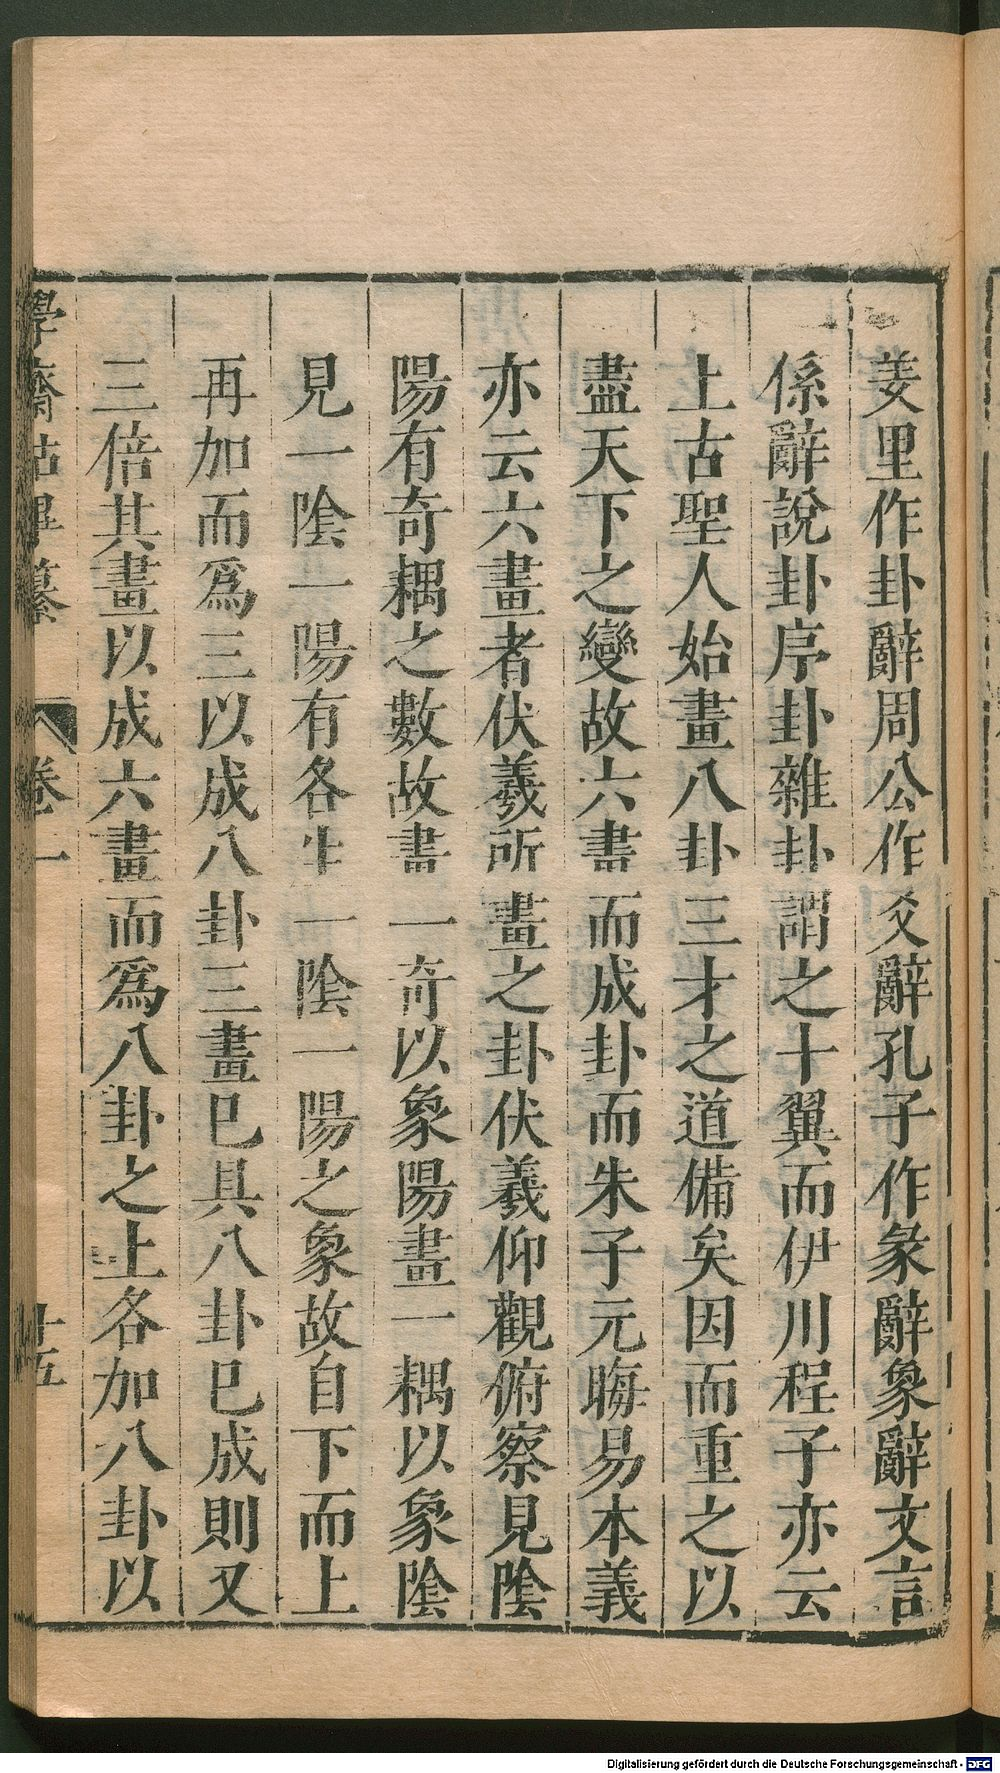 姜里作卦辭周公作爻辭孔子作彖辭象辭文言
係辭說卦序卦雜卦謂之十翼而伊川程子亦云
上古聖人始畫八卦三才之道備矣因而重之以
盡天下之變故六畫而成卦而朱子元晦易本義
亦云六畫者伏羲所畫之卦伏羲仰觀俯察見陰
陽有奇耦之數故畫一奇以象陽畫一耦以象陰
見一陰一陽有各生一陰一陽之象故自下而上
再加而爲三以成八卦三畫巳具八卦巳成則又
三倍其畫以成六畫而爲八卦之上各加八卦以
學齋佔畢纂 卷一 十五
Digitalisierung gefördert durch die Deutsche Forschungsgemeinschaft - DFG